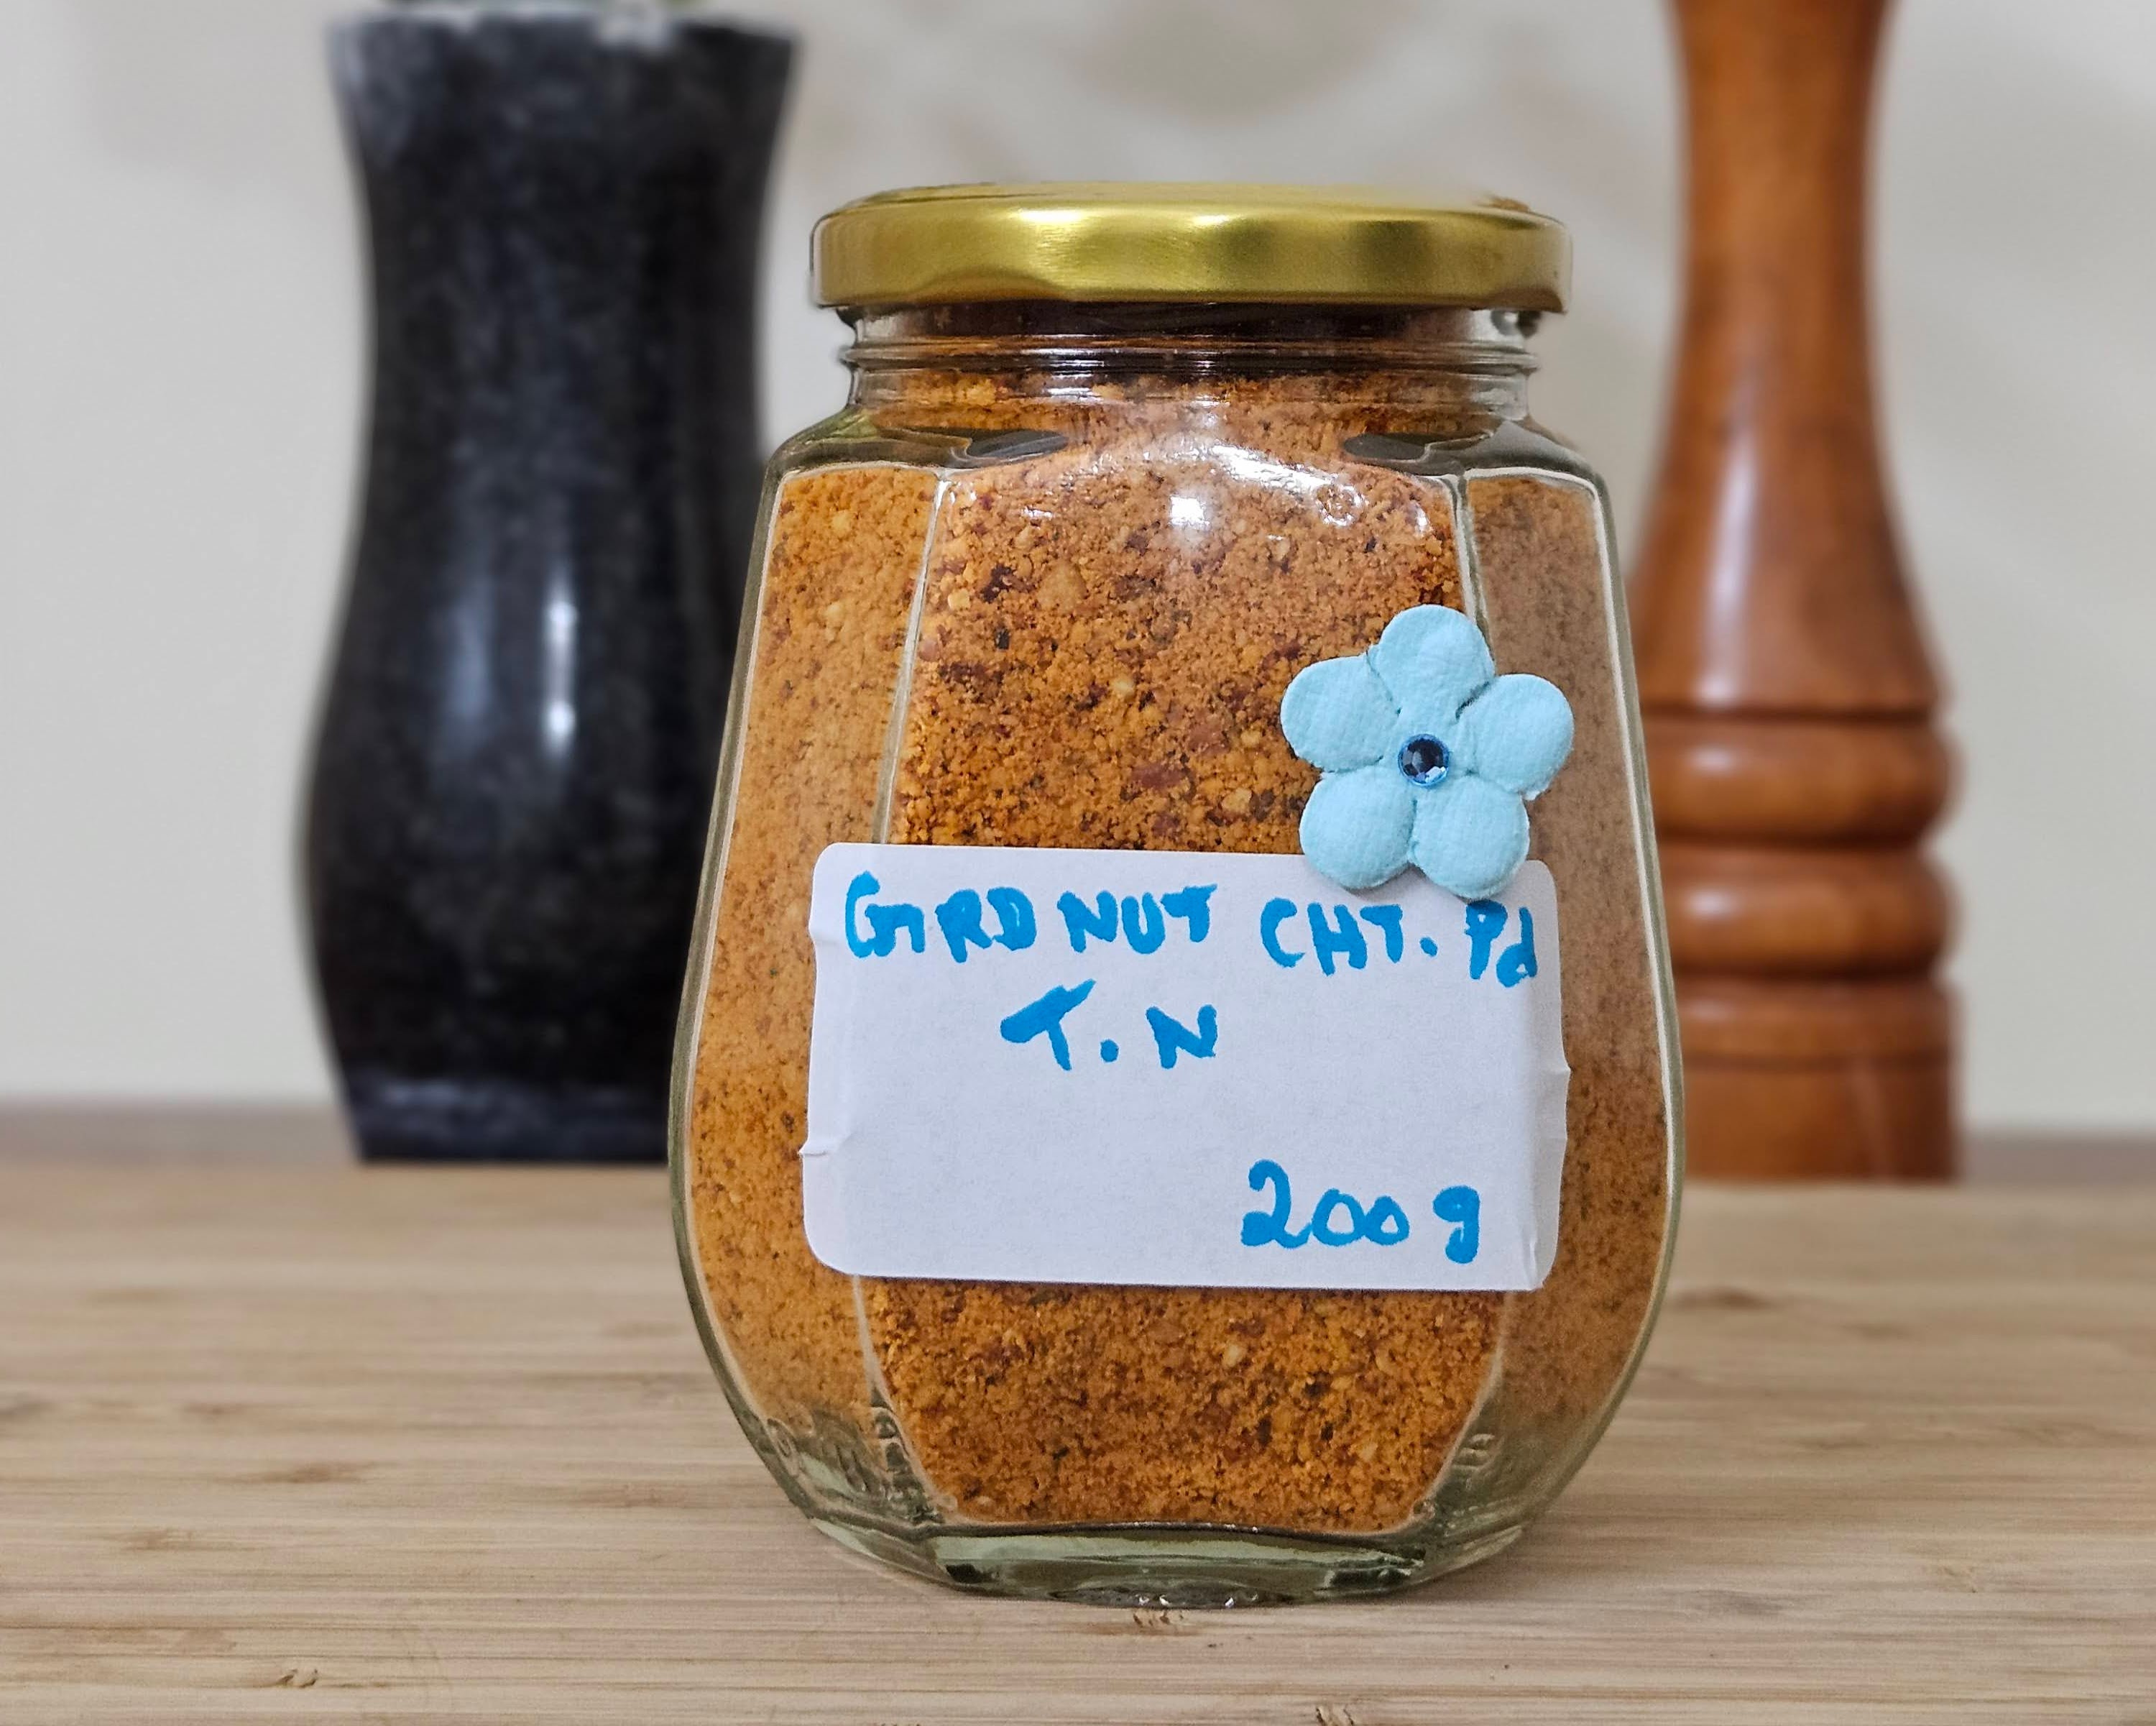 GRD NUT CHT. Pd
T. N
200 g